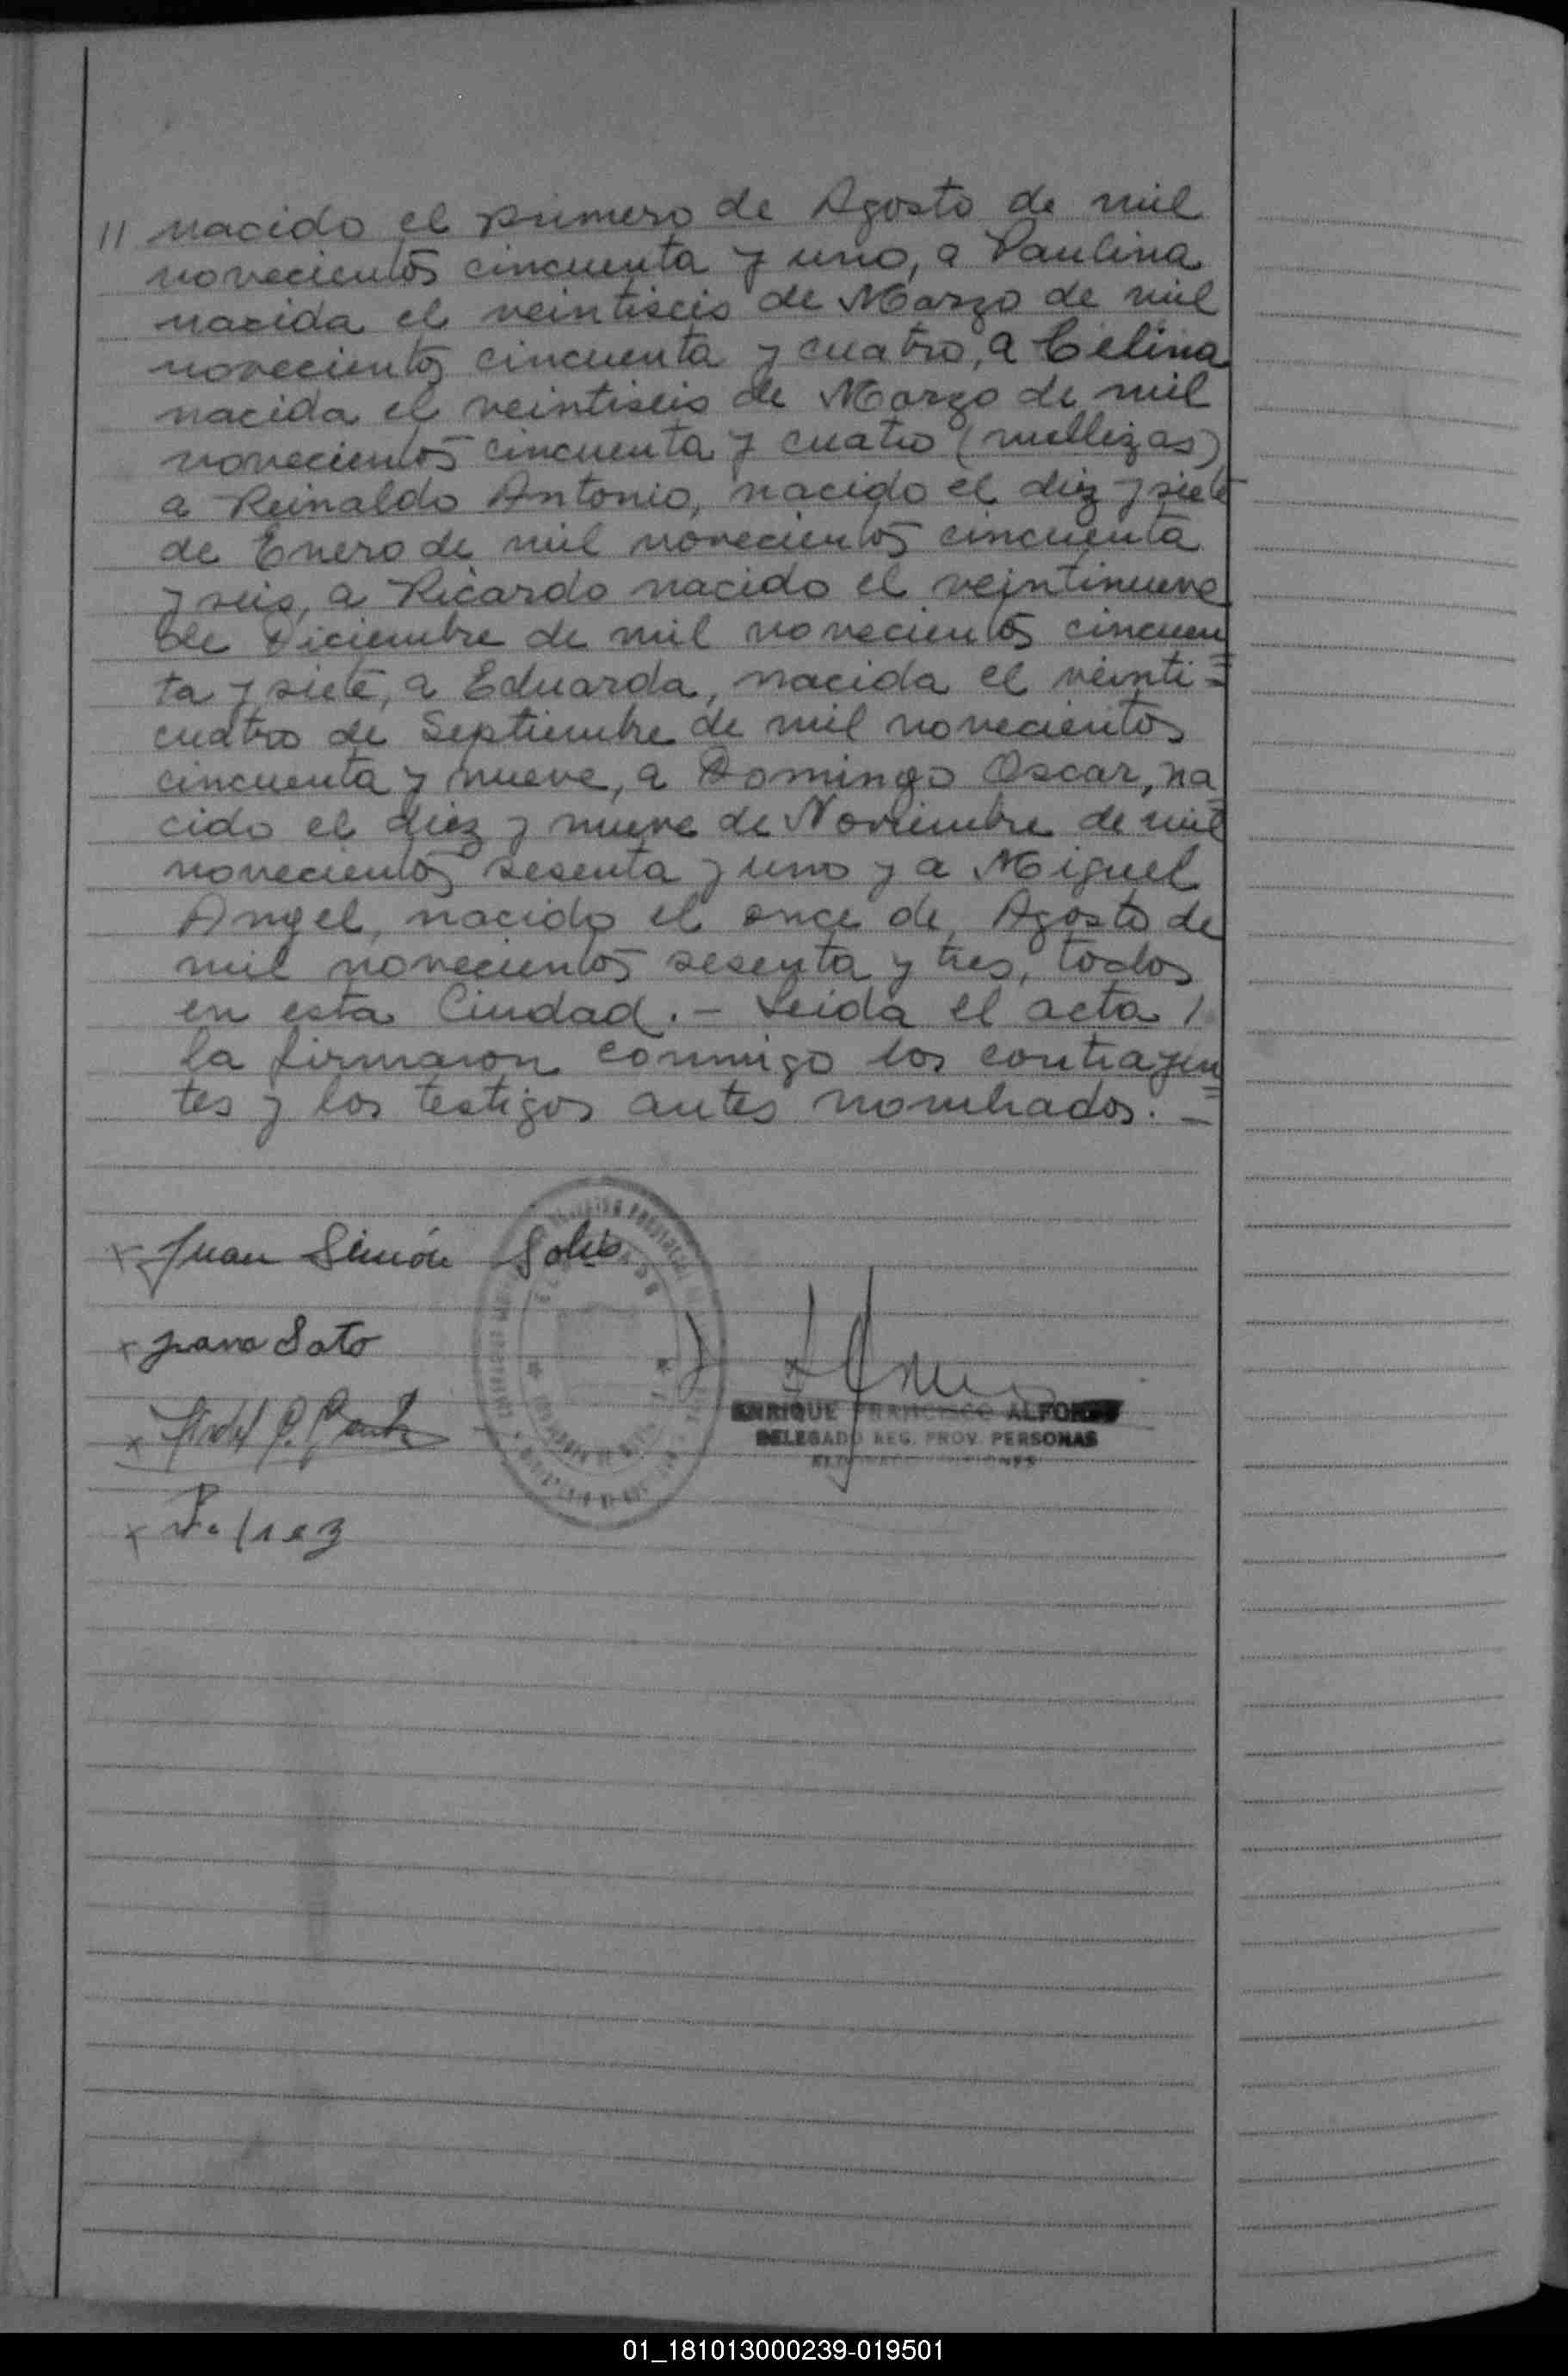 11 nacido el primero de Agosto de mil
novecientos cincuenta y uno, a Paulina
nacida el veintiseis de Marzo de mil
novecientos cincuenta y cuatro, a Celina
nacida el veintiseis de Marzo de mil
novecientos cincuenta y cuatro (mellizas)
a Reinaldo Antonio, nacido el diez y siete
de Enero de mil novecientos cincuenta
y seis, a Ricardo nacido el veintinueve
de Diciembre de mil novecientos cincuen
ta y siete, a Eduarda, nacida el veinti=
cuatro de Septiembre de mil novecientos
cincuenta y nueve, a Domingo Oscar, na
cido el diez y nueve de Noviembre de mil
novecientos sesenta y uno y a Miguel
Angel, nacido el once de Agosto de
mil novecientos sesenta y tres, todos
en esta Ciudad. - Leida el acta /
la firmaron conmigo los contrayen=
tes y los testigos antes nombrados. -
x Juan Simón Solis
x Juana Soto
ENRIQUE FRANCISCO ALFONSO
DELEGADO REG. PROV. PERSONAS
01_181013000239-019501